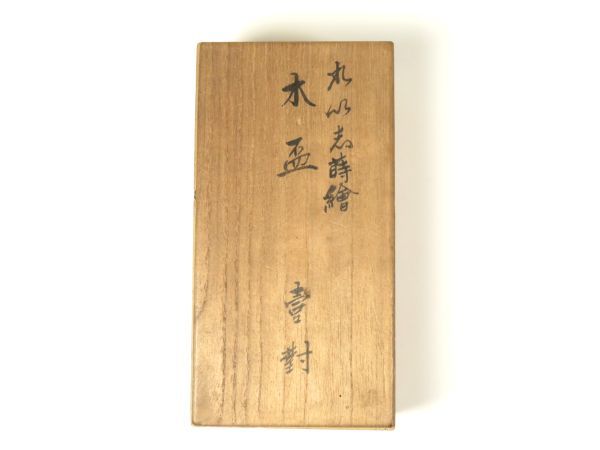 れ以志蒔繪
木盃 壹對